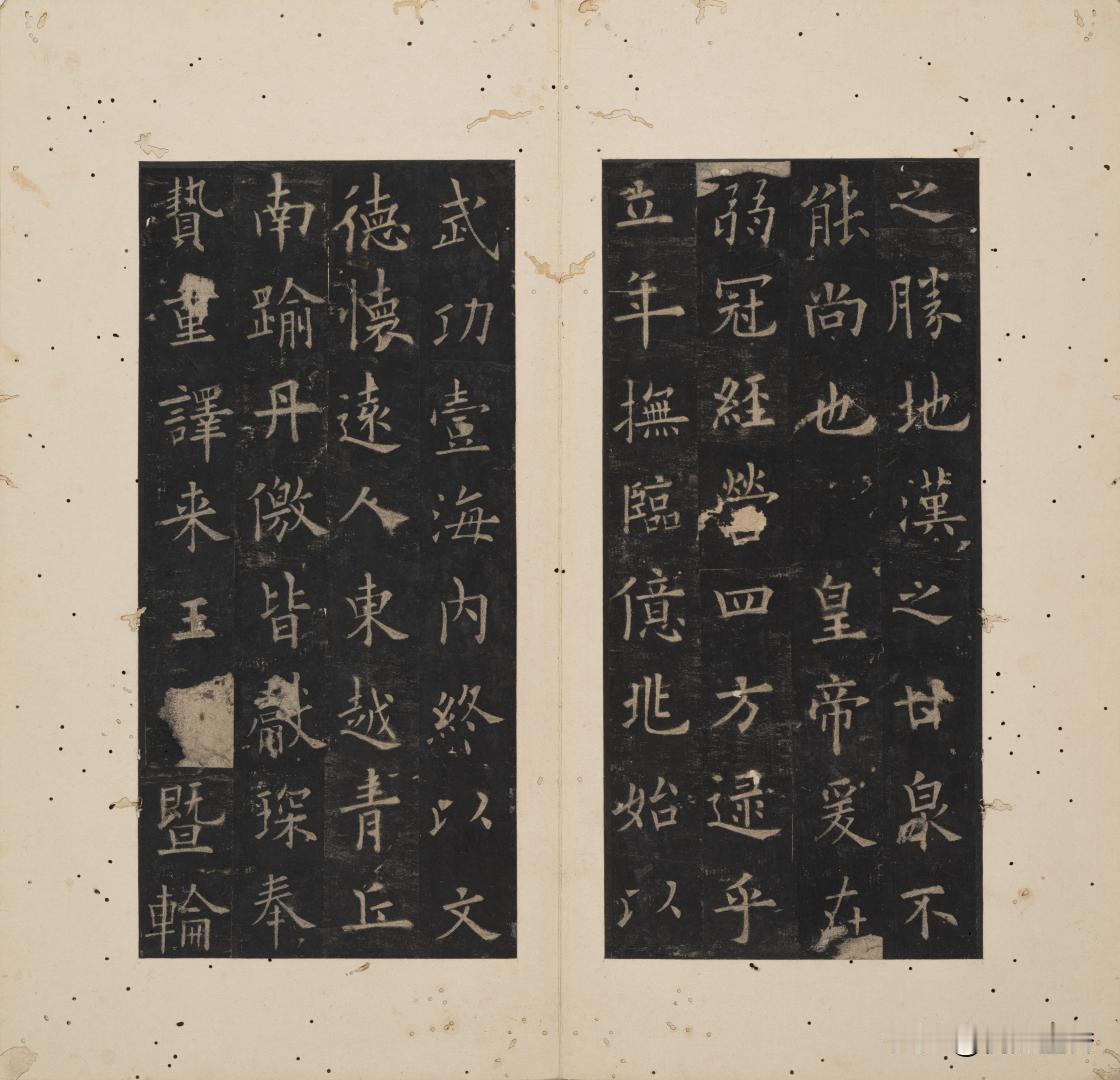 之勝地漢之甘泉不
能尚也皇帝爰在
弱冠經營四方逯乎
立年撫臨億兆始以
武功壹海內終以文
德懷遠人東越青丘
南踰丹儌皆獻琛奉
贄重譯来王暨輪